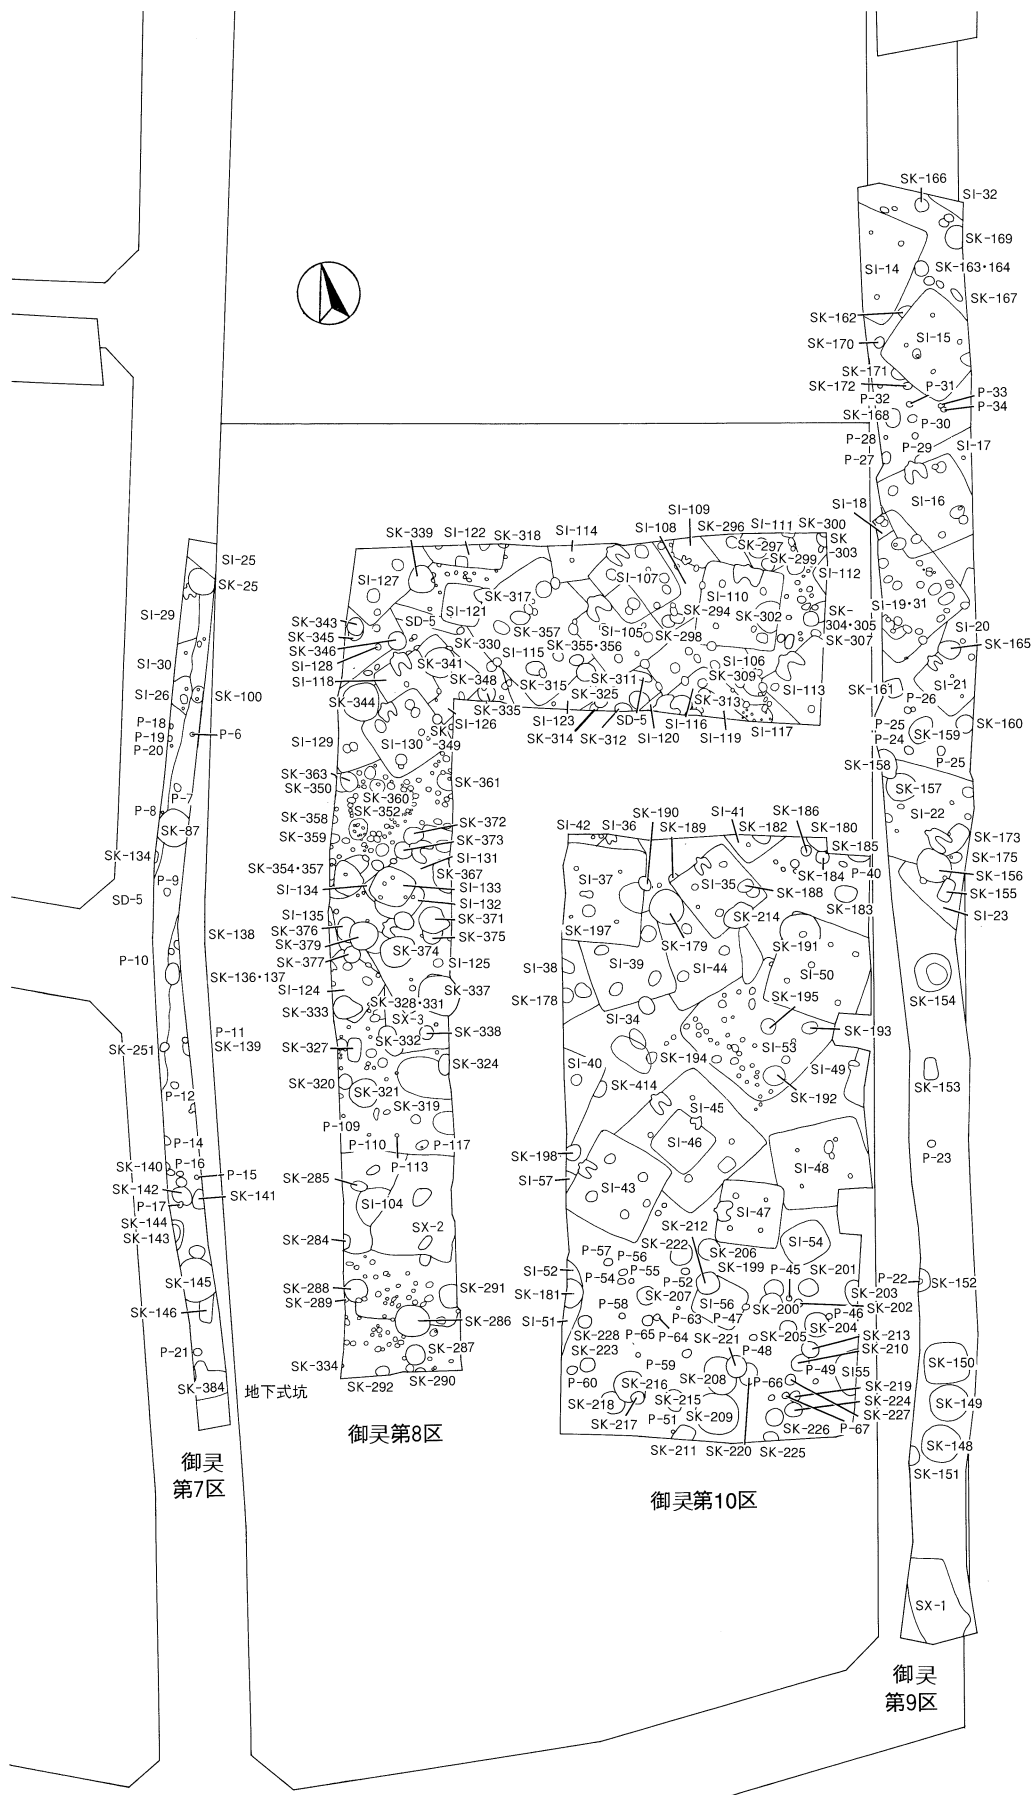 SK-166
SI-32
SK-169
SI-14
SK-163・164
SK-167
SK-162
SI-15
SK-170
SK-171
SK-172
P-31
P-33
P-32
P-34
SK-168
P-30
P-28
P-29
SI-17
P-27
SI-16
SI-18
SI-19・31
SI-20
SK-165
SI-21
SK-161
P-26
P-25
P-24
SK-159
SK-160
P-25
SK-158
SK-157
SI-22
SK-173
SK-175
SK-156
SK-155
SI-23
SK-154
SK-153
P-23
P-22
SK-152
SK-150
SK-149
SK-148
SK-151
SX-1
御灵
第9区
SI-25
SK-25
SI-29
SI-30
SI-26
SK-100
P-18
P-19
P-20
P-6
P-7
P-8
SK-87
SK-134
P-9
SD-5
SK-138
P-10
SK-136・137
P-11
SK-139
SK-251
P-12
P-14
SK-140
P-16
P-15
SK-142
SK-141
P-17
SK-144
SK-143
SK-145
SK-146
P-21
SK-384
地下式坑
御灵
第7区
SK-339
SI-122
SK-318
SI-114
SI-108
SI-109
SK-296
SI-111
SK-300
SK-297
SK
-303
SK-299
SI-112
SI-127
SK-317
SI-107
SI-110
SI-121
SD-5
SK-294
SK-302
SK-
304・305
SK-343
SK-345
SK-346
SI-128
SI-118
SK-330
SK-357
SI-105
SK-298
SK-307
SK-341
SI-115
SK-355・356
SI-106
SK-348
SK-309
SK-344
SK-315
SK-311
SK-325
SK-313
SI-113
SK-335
SI-126
SI-123
SD-5
SI-116
SI-117
SK-314
SK-312
SI-120
SI-119
SI-129
SI-130
SK
-349
SK-363
SK-350
SK-361
SK-360
SK-352
SK-358
SK-359
SK-372
SK-373
SI-131
SK-367
SK-354・357
SI-134
SI-133
SI-132
SI-135
SK-376
SK-371
SK-379
SK-375
SK-377
SK-374
SI-125
SI-124
SK-337
SK-328・331
SK-333
SX-3
SK-332
SK-338
SK-327
SK-324
SK-320
SK-321
SK-319
P-109
P-110
P-117
P-113
SK-285
SI-104
SX-2
SK-284
SK-288
SK-291
SK-289
SK-286
SK-287
SK-334
SK-292
SK-290
御灵第8区
SK-190
SI-41
SK-186
SI-42
SI-36
SK-189
SK-182
SK-180
SK-185
SI-37
SI-35
SK-184
P-40
SK-188
SK-183
SK-214
SK-197
SK-179
SK-191
SI-38
SI-39
SI-44
SI-50
SK-178
SK-195
SI-34
SK-193
SI-53
SK-194
SI-40
SI-49
SK-414
SK-192
SI-45
SI-46
SK-198
SI-48
SI-57
SI-43
SI-47
SK-212
SI-54
P-57
P-56
SK-222
SK-206
SK-199
SI-52
P-54
P-55
P-52
P-45
SK-201
SK-181
SK-207
SK-203
P-58
SI-56
SK-200
SK-202
P-46
SI-51
P-63
P-47
SK-204
SK-228
P-65
P-64
SK-221
SK-205
SK-213
SK-223
P-48
SK-210
P-59
P-49
SI55
P-60
SK-216
SK-208
P-66
SK-219
SK-218
SK-215
SK-224
SK-217
P-51
SK-209
SK-227
SK-226
P-67
SK-211
SK-220
SK-225
御灵第10区